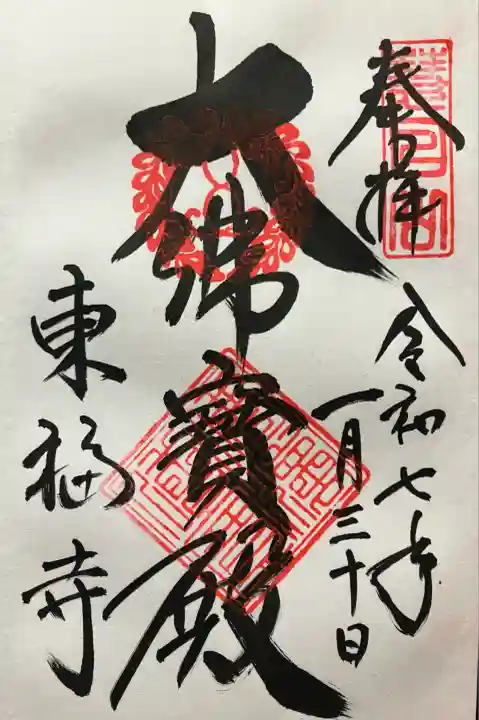 奉拝
令和七年
一月三十日
大佛寶殿
東福寺